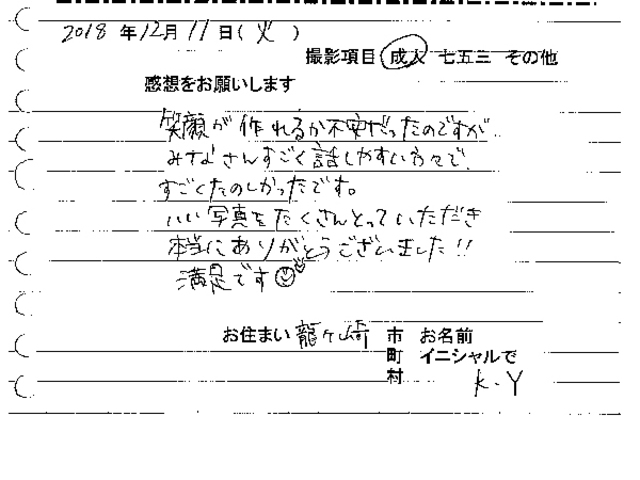 2018年12月11日(火)
撮影項目 成人 七五三 その他
感想をお願いします
笑顔が作れるか不安だったのですが
みなさんすごく話しやすい方々で、
すごくたのしかったです。
いい写真をたくさんとっていただき
本当にありがとうございました!!
満足です
お住まい 龍ヶ崎 市 お名前
町 イニシャルで
村 K.Y